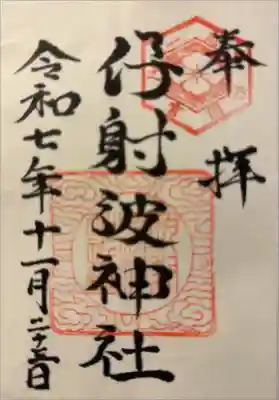 奉拝
伊射波神社
令和七年十一月二十三日